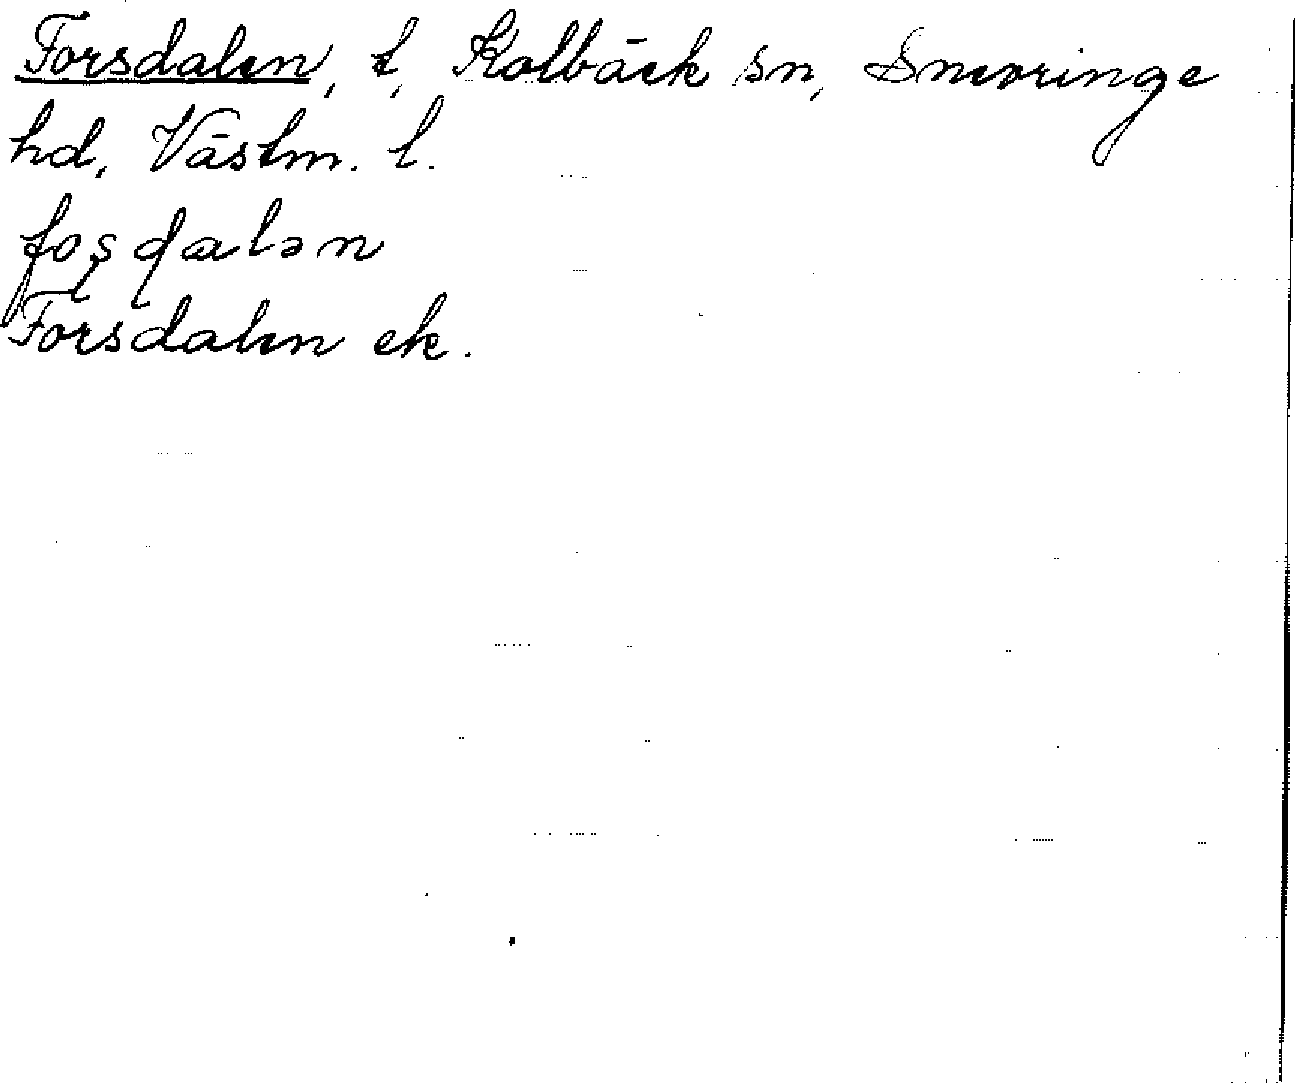 Forsdalen, t, Kolbäck sn, Snevringe
hd, Västm. l.
foʂɖalən
Forsdalen ek.